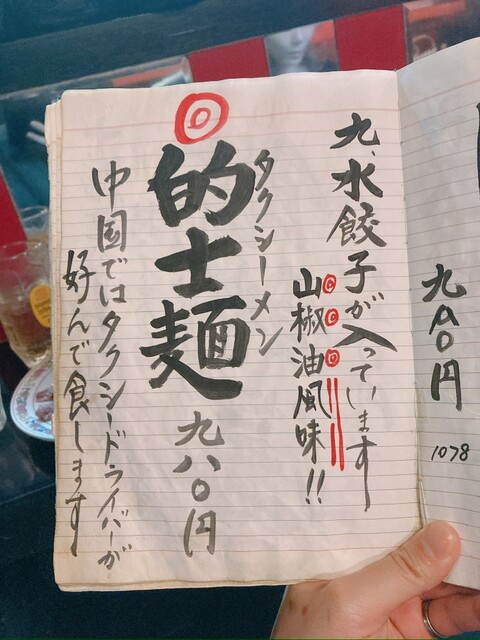 九八〇円
1078
九、水餃子が入っています
山椒油風味!!
タクシーメン
◎的士麺 九八〇円
中国ではタクシードライバーが
好んで食します